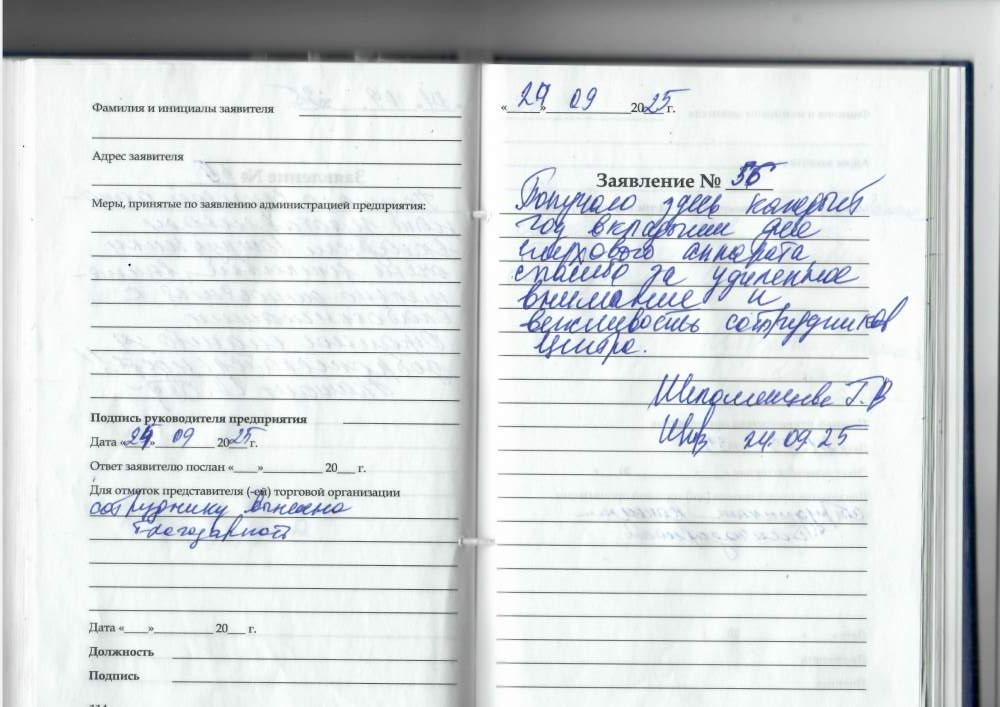 Фамилия и инициалы заявителя
Адрес заявителя
Меры, принятые по заявлению администрацией предприятия:
Подпись руководителя предприятия
Дата «24» 09 2025 г.
Ответ заявителю послан «___» ________ 20__ г.
Для отметок представителя (-ей) торговой организации
сотруднику вынесена
благодарность
Дата «___» ________ 20__ г.
Должность
Подпись
«24» 09 2025 г.
Заявление № 56
Получаю здесь который
год вкладыши для
слухового аппарата
спасибо за уделенное
внимание и
вежливость сотрудников
Центра.
Г.В
24.09.25